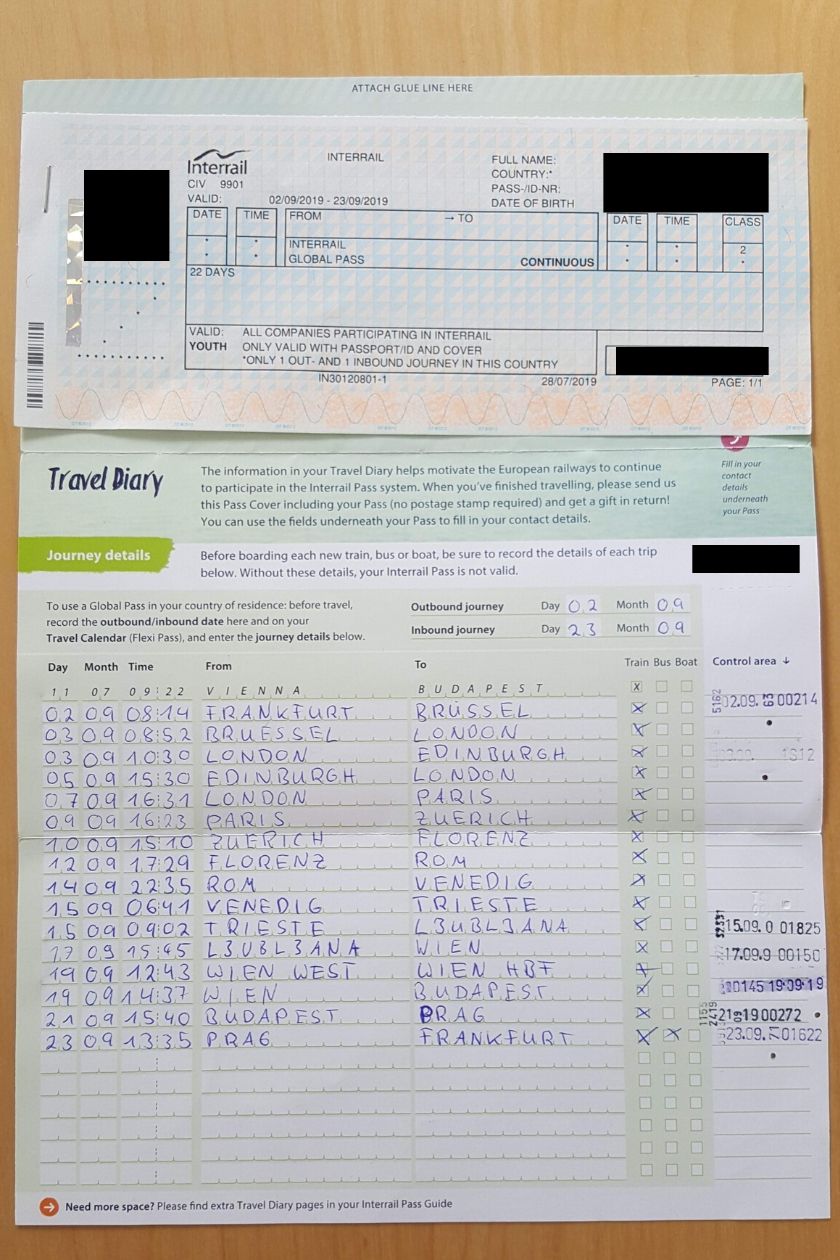 ATTACH GLUE LINE HERE
Interrail
INTERRAIL
CIV 9901
VALID: 02/09/2019 - 23/09/2019
FULL NAME:
COUNTRY:*
PASS-/ID-NR:
DATE OF BIRTH
DATE TIME FROM → TO DATE TIME CLASS
INTERRAIL 2
GLOBAL PASS CONTINUOUS
22 DAYS
VALID: ALL COMPANIES PARTICIPATING IN INTERRAIL
YOUTH ONLY VALID WITH PASSPORT/ID AND COVER
*ONLY 1 OUT- AND 1 INBOUND JOURNEY IN THIS COUNTRY
IN30120801-1 28/07/2019 PAGE: 1/1
Travel Diary
The information in your Travel Diary helps motivate the European railways to continue
to participate in the Interrail Pass system. When you've finished travelling, please send us
this Pass Cover including your Pass (no postage stamp required) and get a gift in return!
You can use the fields underneath your Pass to fill in your contact details.
Fill in your
contact
details
underneath
your Pass
Journey details
Before boarding each new train, bus or boat, be sure to record the details of each trip
below. Without these details, your Interrail Pass is not valid.
To use a Global Pass in your country of residence: before travel,
record the outbound/inbound date here and on your
Travel Calendar (Flexi Pass), and enter the journey details below.
Outbound journey Day 02 Month 09
Inbound journey Day 23 Month 09
Day Month Time From To Train Bus Boat Control area ↓
11 07 09:22 VIENNA BUDAPEST X
02 09 08:14 FRANKFURT BRÜSSEL X 02.09. 00214
03 09 08:52 BRUESSEL LONDON X
03 09 10:30 LONDON EDINBURGH X 1312
05 09 15:30 EDINBURGH LONDON X
07 09 16:31 LONDON PARIS X
09 09 16:23 PARIS ZUERICH X
10 09 15:10 ZUERICH FLORENZ X
12 09 17:29 FLORENZ ROM X
14 09 22:35 ROM VENEDIG X
15 09 06:41 VENEDIG TRIESTE X
15 09 09:02 TRIESTE LJUBLJANA X 15.09.0 01825
17 09 15:45 LJUBLJANA WIEN X 17.09.9 00150
19 09 12:43 WIEN WEST WIEN HBF X
19 09 14:37 WIEN BUDAPEST X 00145 19·09·19
21 09 15:40 BUDAPEST PRAG X 21 1900272
23 09 13:35 PRAG FRANKFURT X X 23.09. 01622
Need more space? Please find extra Travel Diary pages in your Interrail Pass Guide